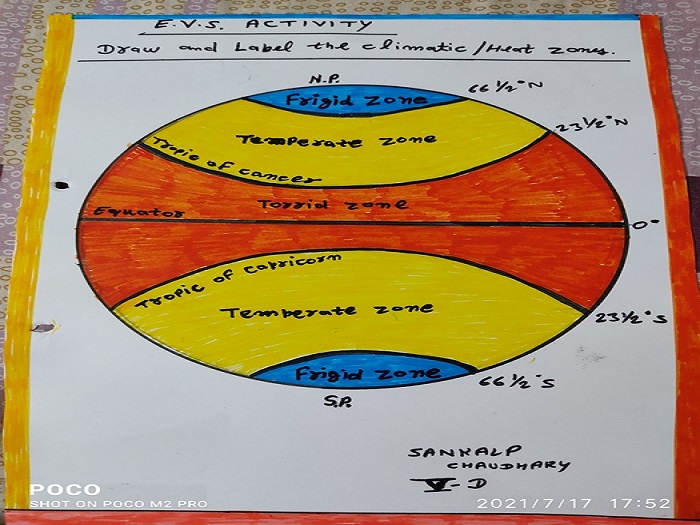 E.V.S. ACTIVITY
Draw and Label the climatic/Heat zones.
N.P.
66 1/2° N
Frigid zone
23 1/2° N
Temperate zone
Tropic of cancer
Torrid zone
Equator
0°
Tropic of capricorn
Temperate zone
23 1/2° S
Frigid zone
66 1/2° S
S.P.
SANKALP
CHAUDHARY
V-D
POCO
SHOT ON POCO M2 PRO
2021/7/17 17:52